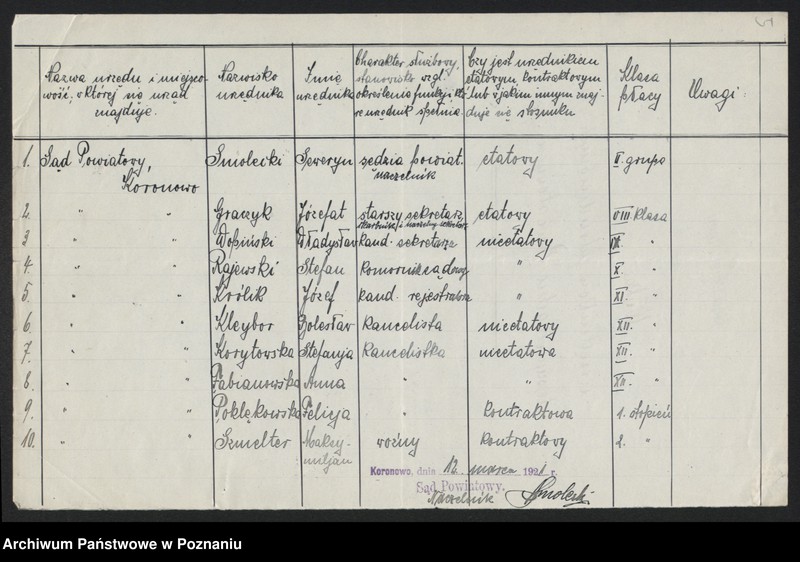 Nazwa urzędu i miejsco-
wość, w której się urząd
znajduje.
Nazwisko
urzędnika
Imię
urzędnika
Charakter służbowy,
stanowisko wzgl.
określenie funkcji któ
re urzędnik spełnia
Czy jest urzędnikiem
etatowym, kontraktowym
lub w jakim innym znaj-
duje się stosunku
Klasa
płacy
Uwagi
1. Sąd Powiatowy, Smolecki Seweryn sędzia powiat. etatowy II grupa
Koronowo naczelnik
2. " " Graczyk Józefat starszy sekretarz etatowy VIII klasa
skarbnik i
3 " " Władysław kand. sekretarz nieetatowy IX. "
4. " " Rajewski Stefan komornik sądowy " X. "
5. " " Królik Józef kand. rejestratora " XI. "
6. " " Kleybor Bolesław kancelista nieetatowy XII. "
7. " " Korytowska Stefanja kancelistka nieetatowa XII. "
8. " " Fabianowska Anna " " XII. "
9. " " Poklękowska Felicja " kontraktowa 1. stopień
10. " " Szmelter Maksy- woźny kontraktowy 2. "
miljan
Koronowo, dnia 12. marca 1921 r.
Sąd Powiatowy.
Naczelnik Smolecki
Archiwum Państwowe w Poznaniu